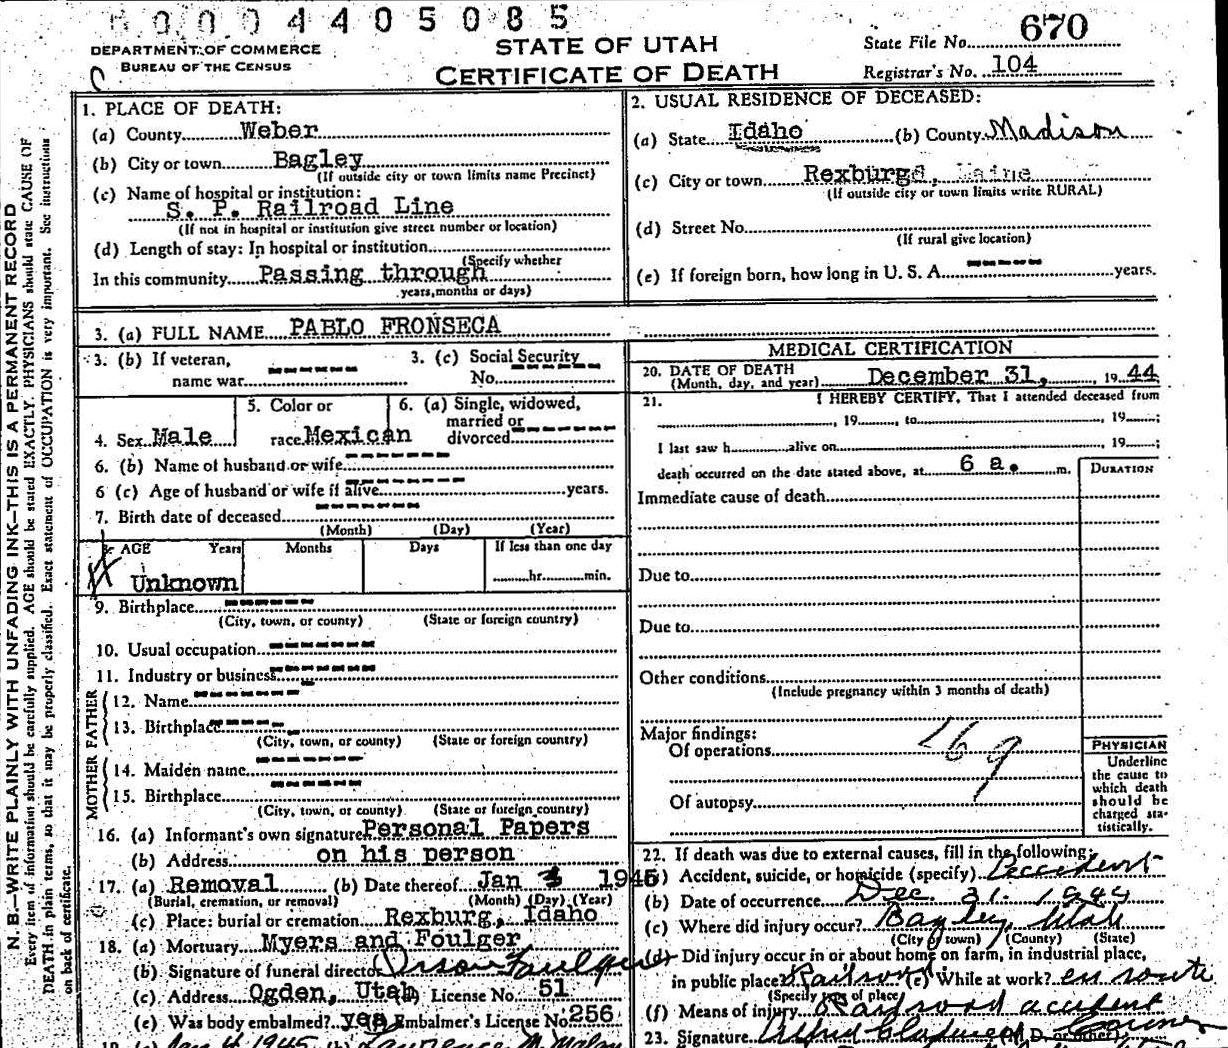 0004405085
DEPARTMENT OF COMMERCE
BUREAU OF THE CENSUS
STATE OF UTAH
CERTIFICATE OF DEATH
State File No. 670
Registrar's No. 104
N. B.—WRITE PLAINLY WITH UNFADING INK—THIS IS A PERMANENT RECORD
Every item of information should be carefully supplied. AGE should be stated EXACTLY. PHYSICIANS should state CAUSE OF
DEATH in plain terms, so that it may be properly classified. Exact statement of OCCUPATION is very important. See instructions
on back of certificate.
1. PLACE OF DEATH:
(a) County Weber
(b) City or town Bagley
(If outside city or town limits name Precinct)
(c) Name of hospital or institution:
S. P. Railroad Line
(If not in hospital or institution give street number or location)
(d) Length of stay: In hospital or institution
(Specify whether
In this community Passing through
years, months or days)
2. USUAL RESIDENCE OF DECEASED:
(a) State Idaho (b) County Madison
(c) City or town Rexburgd, Maine
(If outside city or town limits write RURAL)
(d) Street No.
(If rural give location)
(e) If foreign born, how long in U. S. A. ----- years.
3. (a) FULL NAME PABLO FRONSECA
3. (b) If veteran,
name war ------
3. (c) Social Security
No. ------
4. Sex Male
5. Color or
race Mexican
6. (a) Single, widowed,
married or
divorced ------
6. (b) Name of husband or wife ------
6 (c) Age of husband or wife if alive ------ years.
7. Birth date of deceased ------
(Month) (Day) (Year)
8. AGE Years Months Days If less than one day
Unknown hr. min.
9. Birthplace ------
(City, town, or county) (State or foreign country)
10. Usual occupation ------
11. Industry or business ------
FATHER
12. Name ------
13. Birthplace ------
(City, town, or county) (State or foreign country)
MOTHER
14. Maiden name ------
15. Birthplace ------
(City, town, or county) (State or foreign country)
16. (a) Informant's own signature Personal Papers
(b) Address on his person
17. (a) Removal (b) Date thereof Jan 3 1945
(Burial, cremation, or removal) (Month) (Day) (Year)
(c) Place: burial or cremation Rexburg, Idaho
18. (a) Mortuary Myers and Foulger
(b) Signature of funeral director Orson Foulger
(c) Address Ogden, Utah License No. 51
(e) Was body embalmed? yes Embalmer's License No. 256
19. (a) Jan 4 1945 (b) Lawrence N. Malan
MEDICAL CERTIFICATION
20. DATE OF DEATH
(Month, day, and year) December 31, 1944
21. I HEREBY CERTIFY, That I attended deceased from
, 19 , to , 19 ;
I last saw h alive on , 19 ;
death occurred on the date stated above, at 6 a. m.
DURATION
Immediate cause of death
Due to
Due to
Other conditions
(Include pregnancy within 3 months of death)
Major findings:
Of operations
169
Of autopsy
PHYSICIAN
Underline
the cause to
which death
should be
charged sta-
tistically.
22. If death was due to external causes, fill in the following:
(a) Accident, suicide, or homicide (specify) Accident
(b) Date of occurrence Dec. 31. 1944
(c) Where did injury occur? Bagley, Utah
(City or town) (County) (State)
(d) Did injury occur in or about home on farm, in industrial place,
in public place? Railroad (e) While at work? en route
(Specify type of place)
(f) Means of injury Railroad accident
23. Signature (M. D. or other) Coroner